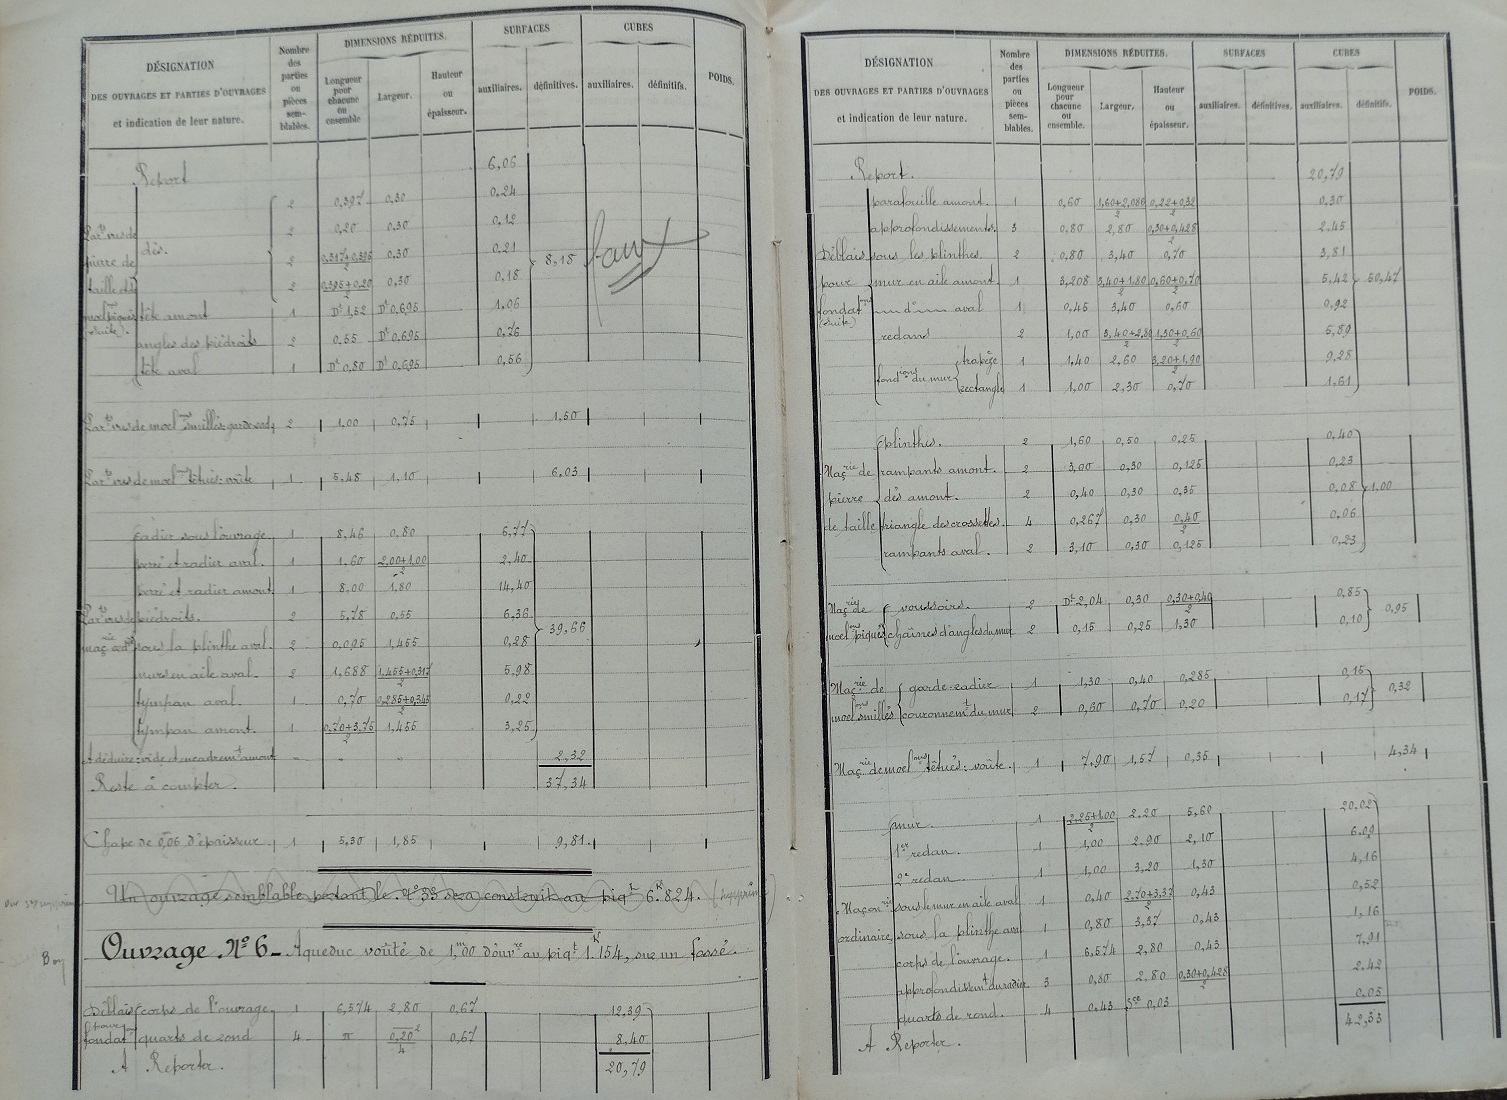 DÉSIGNATION DES OUVRAGES ET PARTIES D'OUVRAGES et indication de leur nature. | Nombre des parties ou pièces sem-blables. | DIMENSIONS RÉDUITES. Longueur pour chacune ou ensemble | Largeur. | Hauteur ou épaisseur. | SURFACES auxiliaires. | définitives. | CUBES auxiliaires. | définitifs. | POIDS.
Report 6,06
2 0,397 0,30 0,24
2 0,20 0,30 0,12
dés. 2 0,317+0,395/2 0,30 0,21 8,18 faux
2 0,395+0,20/2 0,30 0,18
tête amont 1 Dt 1,52 Dt 0,695 1,06
(suite). angles des piédroits 2 0,55 Dt 0,695 0,76
tête aval 1 Dt 0,80 Dt 0,695 0,56
2 1,00 0,75 1,50
1 5,48 1,10 6,03
radier sous l'ouvrage 1 8,46 0,80 6,77
et radier aval. 1 1,60 2,00+1,00/2 2,40
et radier amont 1 8,00 1,80 14,40
piédroits. 2 5,78 0,55 6,36
sous la plinthe aval. 2 0,095 1,455 0,28 39,66
murs en aile aval. 2 1,688 1,455+0,317/2 5,98
tympan aval. 1 0,70 0,285+0,345/2 0,22
tympan amont. 1 0,70+3,75/2 1,455 3,25
A déduire : vide et encadremt amont " " " 2,32
Reste à compter. 37,34
Chape de 0,06 d'épaisseur. 1 5,30 1,85 9,81
Un ouvrage semblable portant le n° 33 sera construit au piqt 6k.824. (supprimé)
Bon
Ouvrage N° 6 - Aqueduc voûté de 1m,00 d'ouvre au piqt 1k.154, sur un fossé.
Déblais pour fondat corps de l'ouvrage. 1 6,574 2,80 0,67 12,39
quarts de rond 4 π 0,20²/4 0,67 8,40
A Reporter. 20,79
DÉSIGNATION DES OUVRAGES ET PARTIES D'OUVRAGES et indication de leur nature. | Nombre des parties ou pièces sem-blables. | DIMENSIONS RÉDUITES. Longueur pour chacune ou ensemble. | Largeur. | Hauteur ou épaisseur. | SURFACES auxiliaires. | définitives. | CUBES auxiliaires. | définitifs. | POIDS.
Report. 20,79
parafouille amont. 1 0,60 1,60+2,086/2 0,22+0,32/2 0,30
approfondissements. 3 0,80 2,80 0,30+0,428/2 2,45
Déblais sous les plinthes 2 0,80 3,40 0,70 3,81
pour mur en aile amont. 1 3,208 3,40+1,80/2 0,60+0,70/2 5,42 50,47
fondatons (suite) d° aval 1 0,45 3,40 0,60 0,92
redans 2 1,00 3,40+2,80/2 1,30+0,60/2 5,89
fondons du mur trapèze 1 1,40 2,60 3,20+1,90/2 9,28
rectangle 1 1,00 2,30 0,70 1,61
plinthes. 2 1,60 0,50 0,25 0,40
Maçrie de rampants amont. 2 3,00 0,30 0,125 0,23
pierre dés amont. 2 0,40 0,30 0,35 0,08 1,00
de taille triangle des crossettes. 4 0,267 0,30 0,40/2 0,06
rampants aval. 2 3,10 0,30 0,125 0,23
Maçrie de voussoirs. 2 Dt 2,04 0,30 0,30+0,40/2 0,85
moelons piqués chaînes d'angles du mur 2 0,15 0,25 1,30 0,10 0,95
Maçrie de garde-radier 1 1,30 0,40 0,285 0,15
moelons smillés couronnemt du mur 2 0,60 0,70 0,20 0,17 0,32
Maçrie de moelons têtués : voûte. 1 7,90 1,57 0,35 4,34
mur. 1 2,25+1,00/2 2,20 5,60 20,02
1er redan. 1 1,00 2,90 2,10 6,09
2e redan. 1 1,00 3,20 1,30 4,16
Maçonrie sous le mur en aile aval 1 0,40 2,70+3,37/2 0,43 0,52
ordinaire, sous la plinthe aval 1 0,80 3,37 0,43 1,16
corps de l'ouvrage. 1 6,574 2,80 0,43 7,91
approfondissemt du radier 3 0,80 2,80 0,30+0,428/2 2,42
quarts de rond. 4 0,43 Sce 0,03 0,05
A Reporter. 42,33